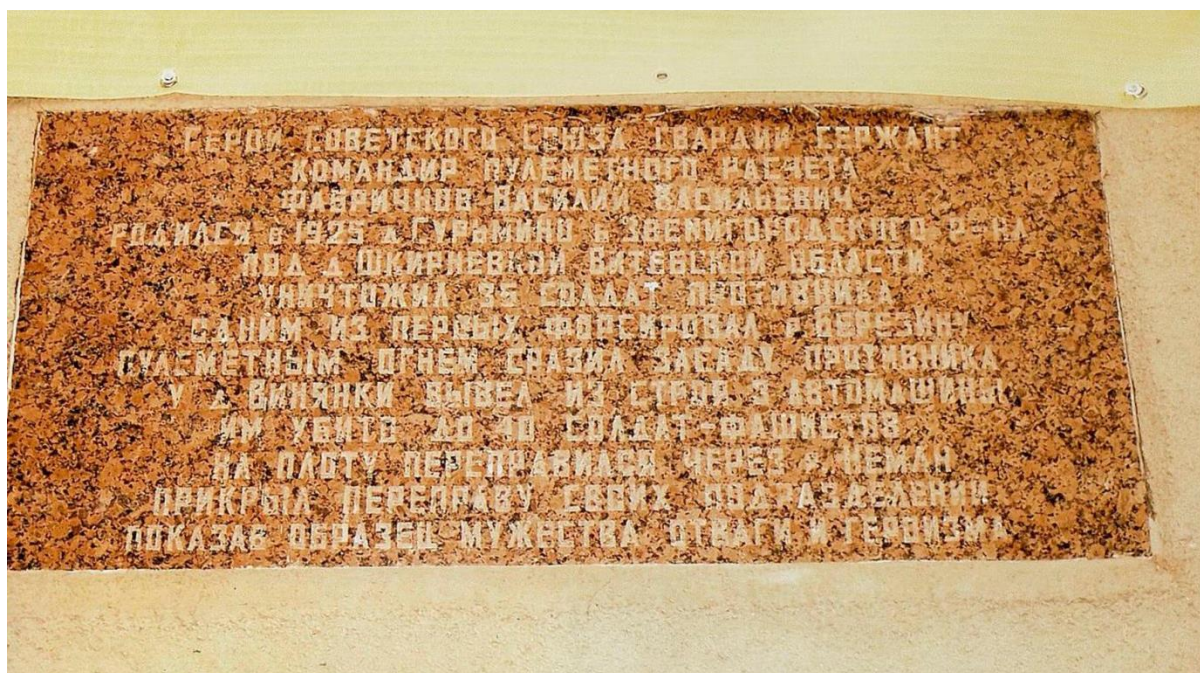 Герой Советского Союза гвардии сержант
командир пулеметного расчета
Фабричнов Василий Васильевич
родился в 1925 д Гурьмино в Звенигородского р-на
под д Шкирневкой Витебской области
уничтожил 35 солдат противника
одним из первых форсировал р Березину
пулеметным огнем сразил засаду противника
у д Винянки вывел из строя 3 автомашины
им убито до 40 солдат-фашистов
на плоту переправился через р Неман
прикрыл переправу своих подразделений
показав образец мужества отваги и героизма